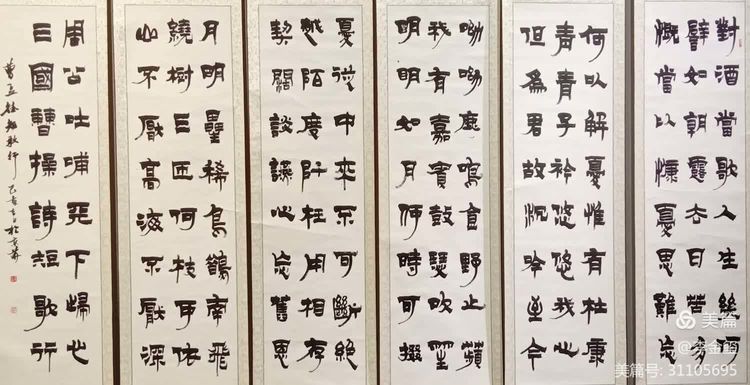 對酒當歌人生幾何
譬如朝露去日苦多
慨當以慷憂思難忘
何以解憂惟有杜康
青青子衿悠悠我心
但為君故沉吟至今
呦呦鹿鳴食野止蘋
我有嘉賓鼓瑟吹笙
明明如月何時可掇
憂從中來不可斷絕
越陌度阡枉用相存
契闊談讌心念舊恩
月明星稀烏鵲南飛
繞樹三匝何枝可依
山不厭高海不厭深
周公吐哺天下歸心
三國曹操詩短歌行
美篇
美篇号: 31105695